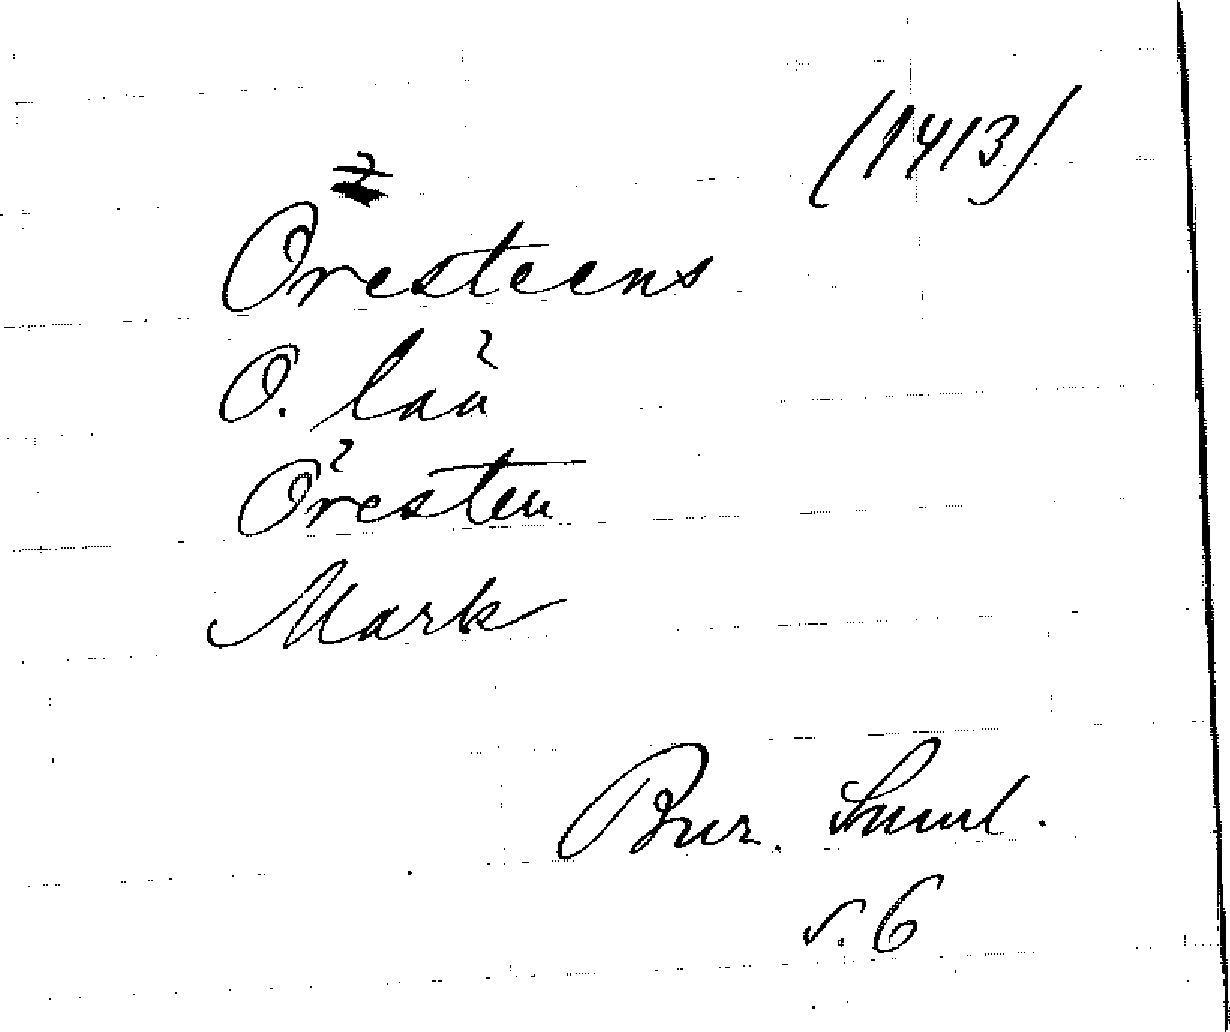 (1413)
Oresteens
O. laa
Öresten
Mark
Bur. Saml.
s. 6